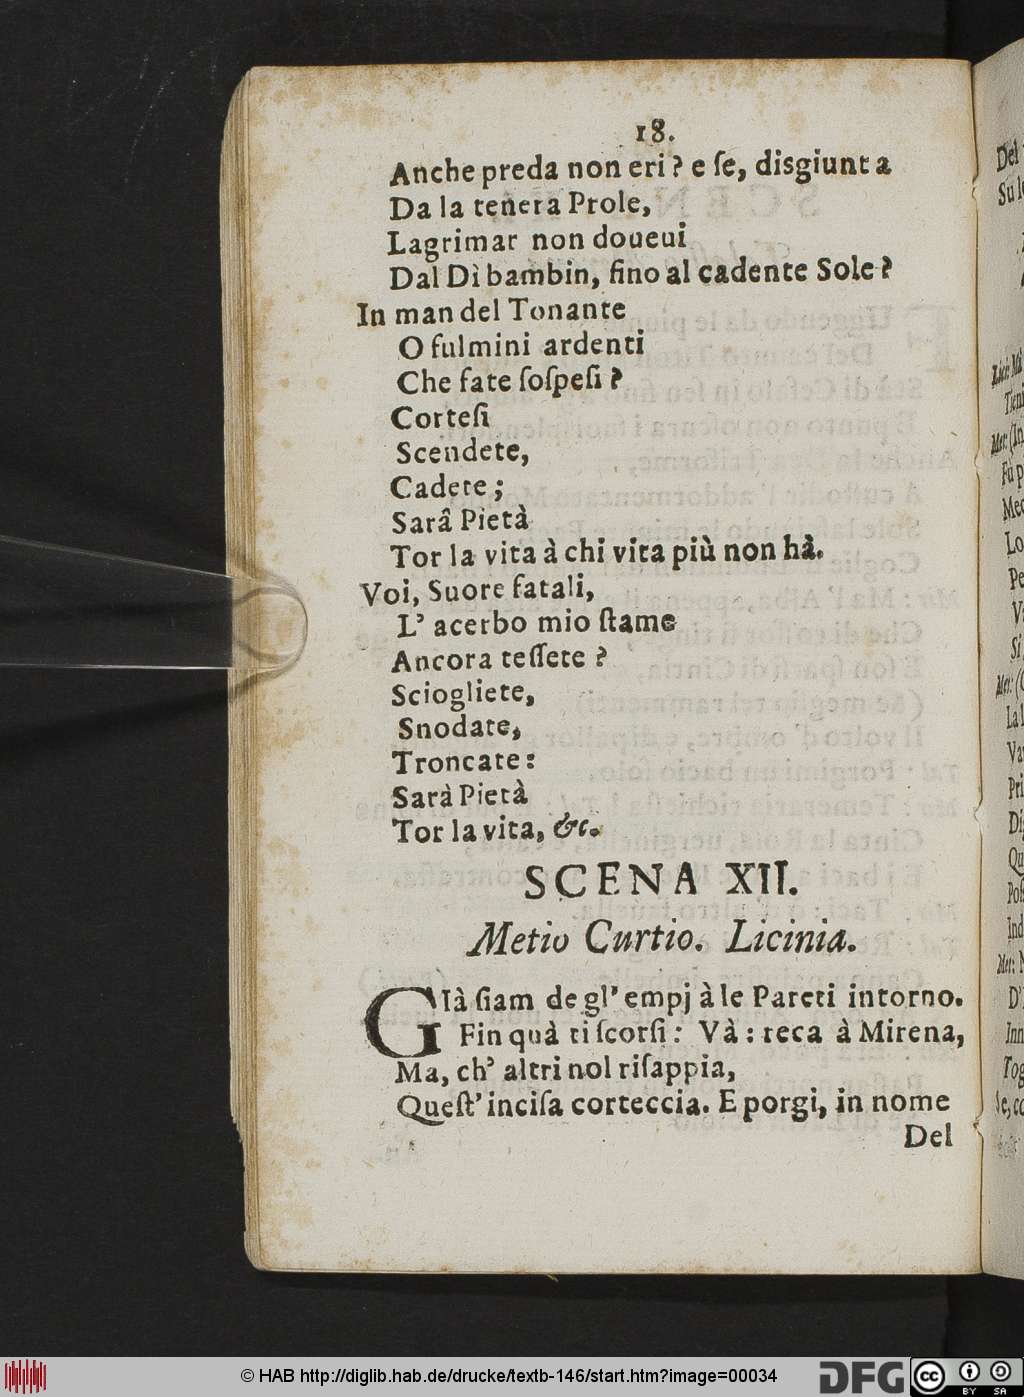 18.
Anche preda non eri? e ſe, disgiunta
Da la tenera Prole,
Lagrimar non doueui
Dal Dì bambin, fino al cadente Sole?
In man del Tonante
O fulmini ardenti
Che fate ſoſpeſi?
Corteſi
Scendete,
Cadete;
Sarâ Pietà
Tor la vita à chi vita più non hà.
Voi, Suore fatali,
L' acerbo mio ſtame
Ancora teſſete?
Sciogliete,
Snodate,
Troncate:
Sarà Pietà
Tor la vita, &c.
SCENA XII.
Metio Curtio. Licinia.
GIà ſiam de gl' empj à le Pareti intorno.
Fin quà ti ſcorſi: Và: reca à Mirena,
Ma, ch' altri nol riſappia,
Queſt' inciſa corteccia. E porgi, in nome
Del
Del
Su
© HAB http://diglib.hab.de/drucke/textb-146/start.htm?image=00034
DFG
cc
BY SA